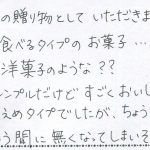 の贈り物として いただきま
食べるタイプの お菓子…
洋菓子のような??
ンプルだけど すごくおいし
えめタイプでしたが、ちょう
う間に 無くなってしまいそ